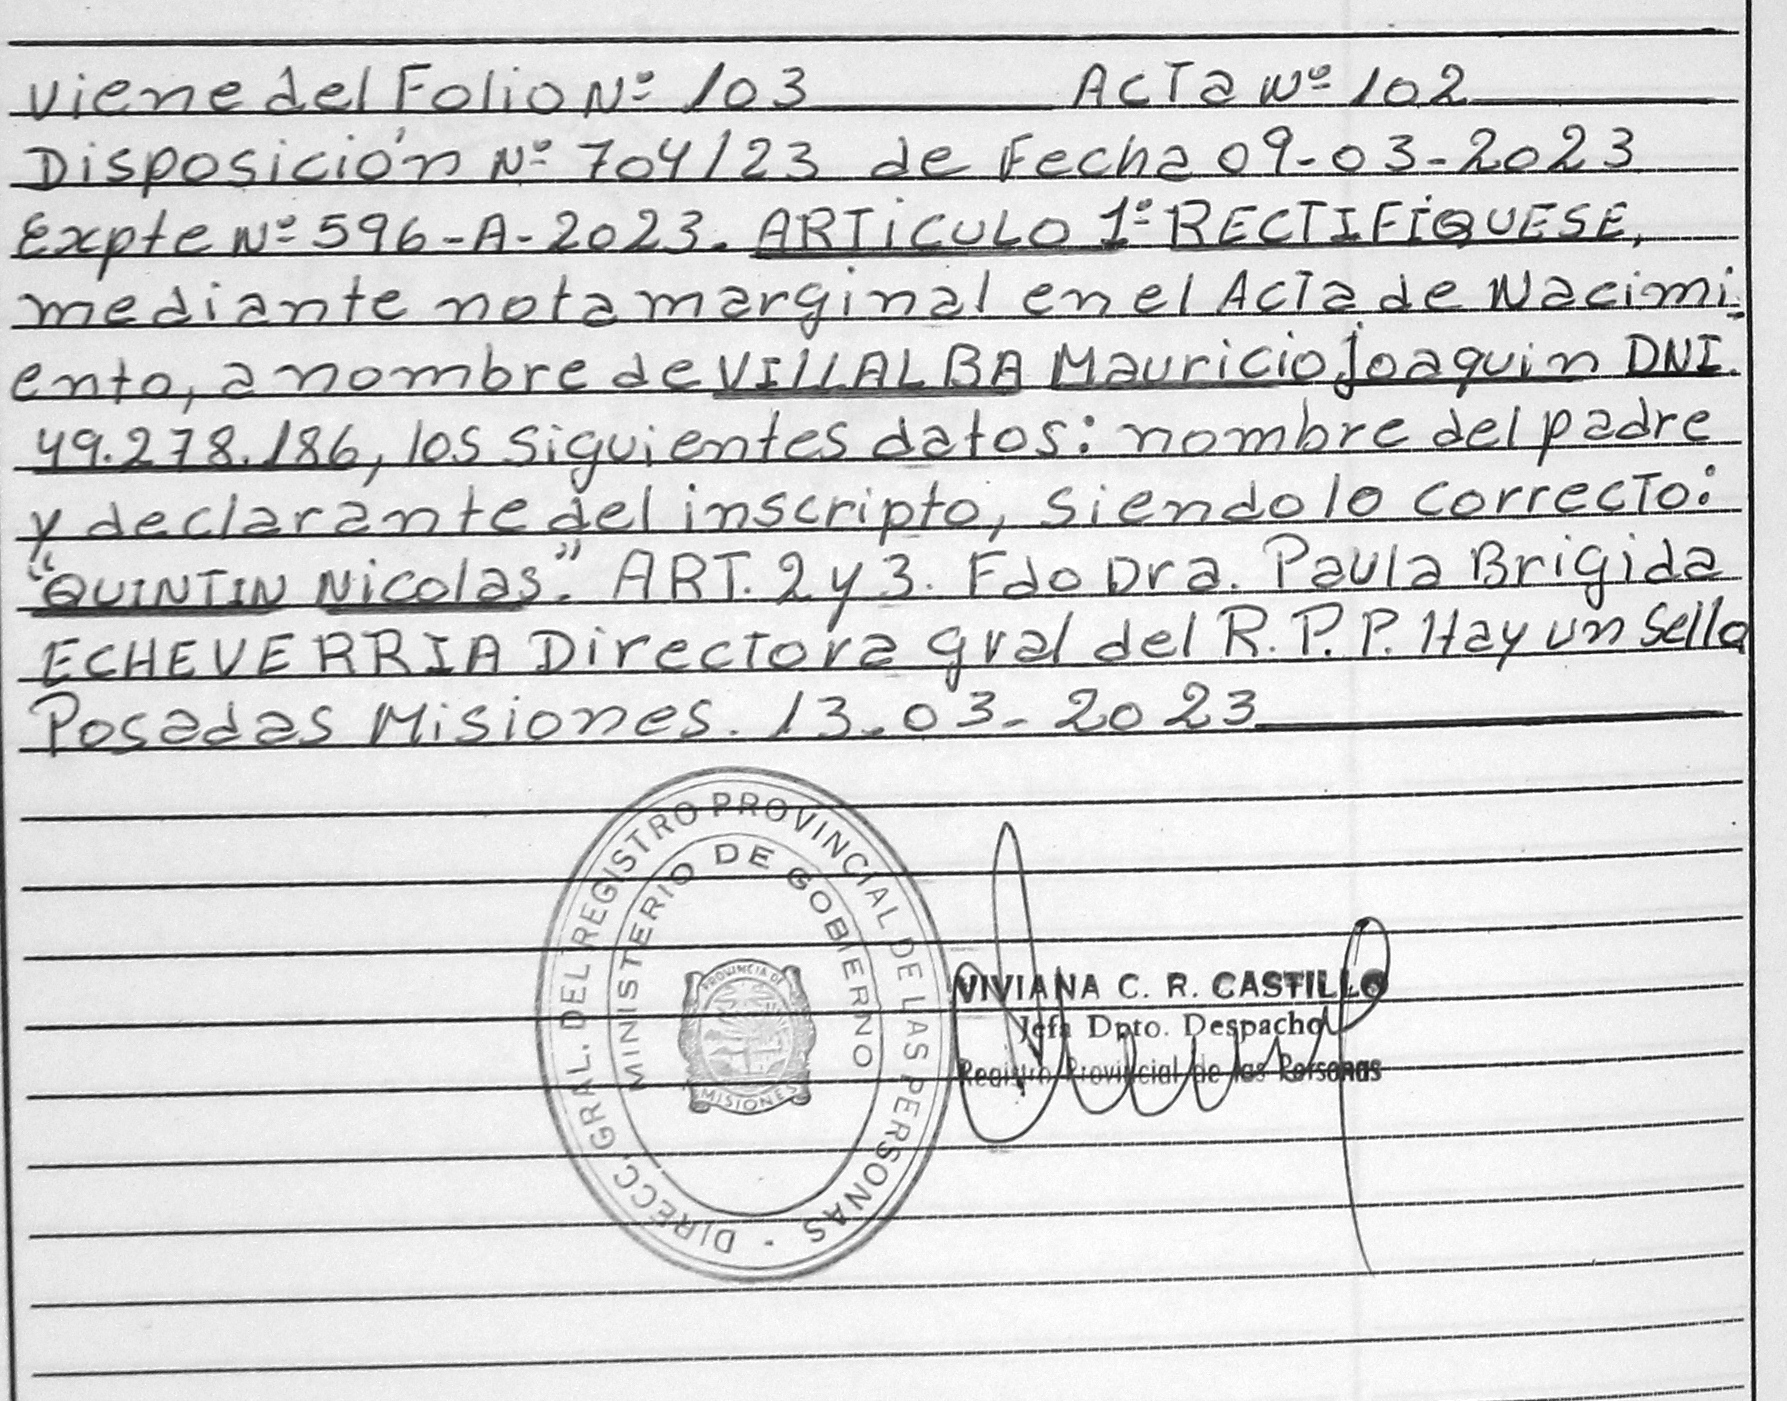 Viene del Folio Nº 103 Acta Nº 102
Disposición Nº 704/23 de Fecha 09-03-2023
Expte Nº 596-A-2023. ARTiCULO 1º RECTIFÍQUESE,
mediante nota marginal en el Acta de Nacimi-
ento, a nombre de VILLALBA Mauricio Joaquin DNI.
49.278.186, los siguientes datos: nombre del padre
y declarante del inscripto, siendo lo correcto:
"QUINTIN Nicolas". ART. 2 y 3. Fdo Dra. Paula Brigida
ECHEVERRIA Directora gral del R.P.P. Hay un Sello
Posadas Misiones. 13-03-2023
DIRECC. GRAL. DEL REGISTRO PROVINCIAL DE LAS PERSONAS
MINISTERIO DE GOBIERNO
PROVINCIA DE
MISIONES
VIVIANA C. R. CASTILLO
Jefa Dpto. Despacho
Registro Provincial de las Personas